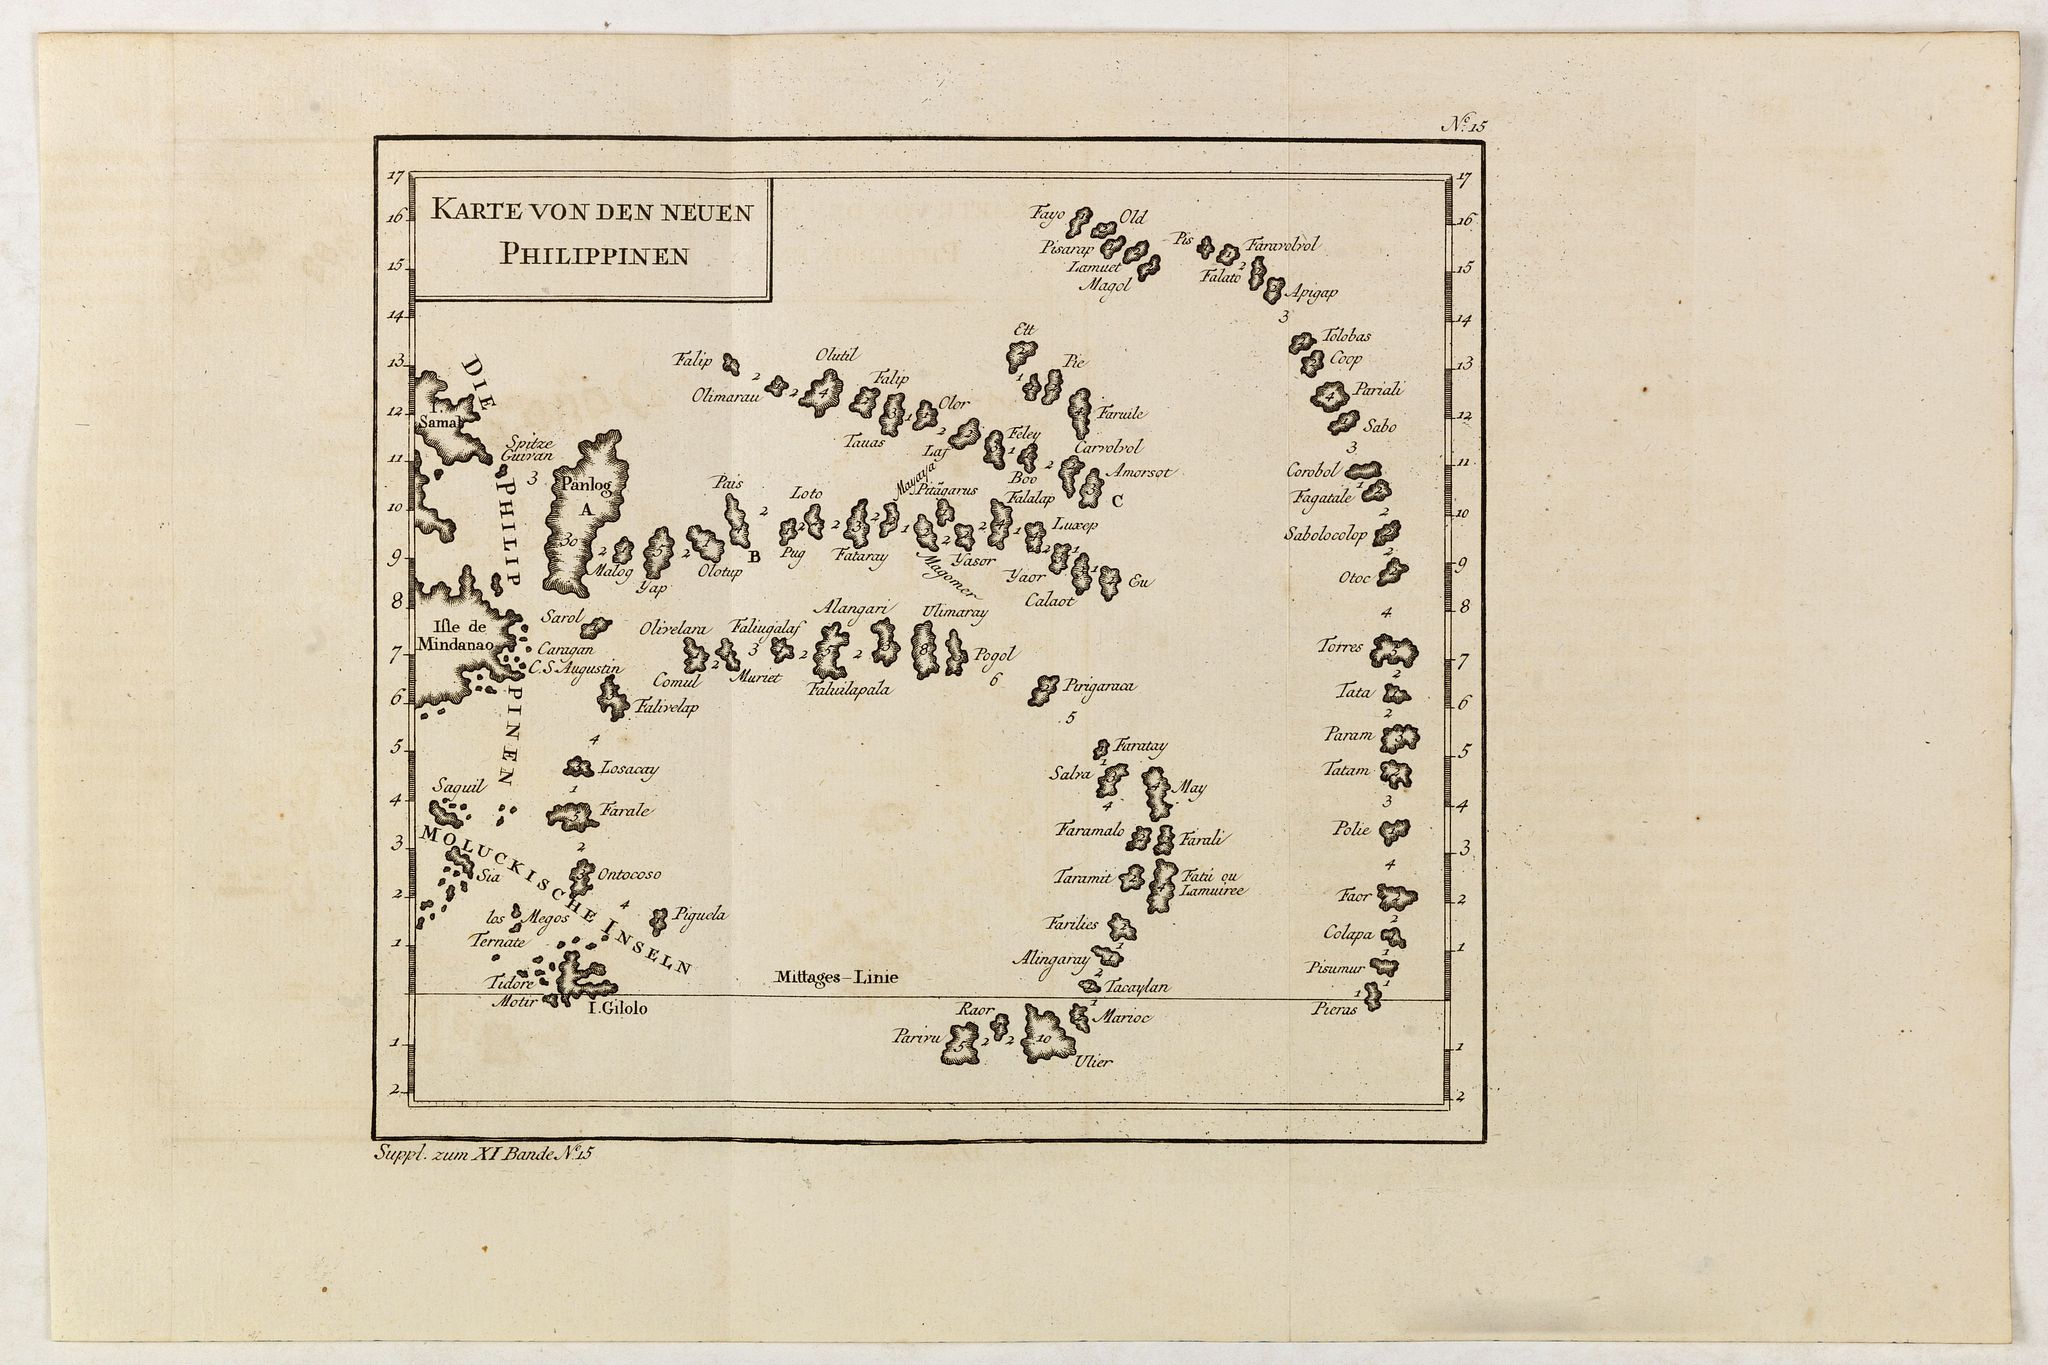 Nº. 15
KARTE VON DEN NEUEN
PHILIPPINEN
17
16
15
14
13
12
11
10
9
8
7
6
5
4
3
2
1
1
2
17
16
15
14
13
12
11
10
9
8
7
6
5
4
3
2
1
1
2
Fayo
Old
Pisarap
Lamuet
Magol
Pis
Faravolvol
Falato
2
Apigap
3
Ett
Pie
1
Tolobas
Coop
Pariali
Sabo
3
Falip
2
Olimarau
2
Olutil
4
Falip
Tauas
1
Olor
2
Laf
Feley
1
Boo
2
Faruile
Carvolvol
Amorsot
C
DIE
PHILIP
PINEN
I.
Samal
Spitze
Guivan
3
Panlog
A
30
2
Malog
Yap
5
2
Olotup
Pais
2
B
Loto
2
Pug
2
Fataray
3
2
Mayaja
1
Pitagarus
Magomer
2
Yasor
2
Falalap
1
Luxep
2
1
Yaor
Calaot
1
Eu
Corobol
1
Fagatale
2
Sabolocolop
2
Otoc
4
Isle de
Mindanao
Sarol
Caragan
C.S. Augustin
Falivelap
4
Olivelara
2
Comul
Faliugalaf
3
Muriet
2
Alangari
2
Faluilapala
Ulimaray
8
Pogol
6
Pirigaraca
5
Torres
2
Tata
2
Param
Tatam
3
Losacay
1
Farale
2
Ontocoso
4
Piguela
Saguil
MOLUCKISCHE INSELN
Sia
los Megos
Ternate
Tidore
Motir
I. Gilolo
Faratay
1
Salva
4
May
Faramalo
Farali
Taramit
Fatú ou
Lamuiree
Farilies
1
Alingaray
2
Tacaylan
1
Polie
4
Faor
2
Colapa
1
Pisumur
1
1
Pieras
Mittages-Linie
Raor
Marioc
Pariru
5
2
2
10
Ulier
Suppl. zum XI Bande Nº. 15